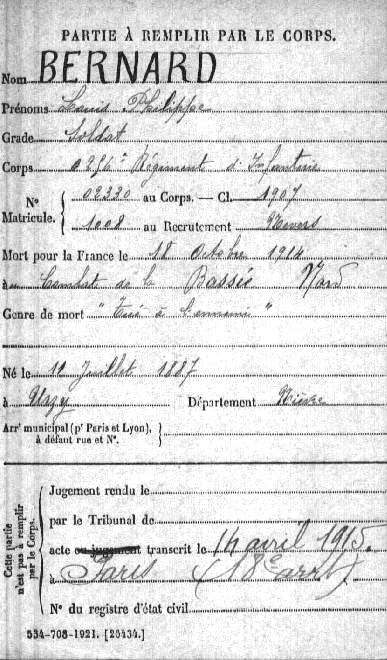 PARTIE À REMPLIR PAR LE CORPS.
Nom BERNARD
Prénoms Louis Philippe
Grade Soldat
Corps Régiment d'Infanterie
N° Matricule. { 02330 au Corps. — Cl. 1907
1008 au Recrutement Nevers
Mort pour la France le 18 Octobre 1914
à Combats de la Bassée Nord
Genre de mort "Tué à l'ennemi"
Né le Juillet 1887
à Département Nièvre
Arrt municipal (pr Paris et Lyon), à défaut rue et N°. }
Cette partie n'est pas à remplir par le Corps. {
Jugement rendu le
par le Tribunal de
acte ou jugement transcrit le 14 avril 1915.
à Paris (18e arrt)
N° du registre d'état civil
534-708-1921. [26434.]